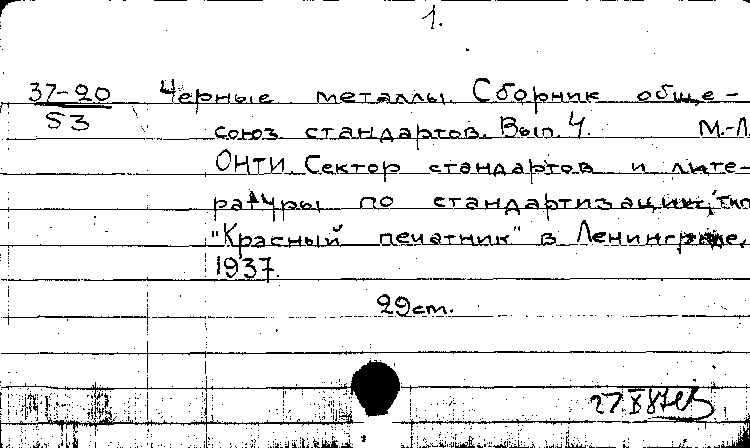 1.
37-20 Черные металлы. Сборник обще-
53 союз. стандартов. Вып. 4. М.-Л.
ОНТИ. Сектор стандартов и лите-
ратуры по стандартизации, тип.
"Красный печатник" в Ленинграде,
1937.
29 ст.
27.X